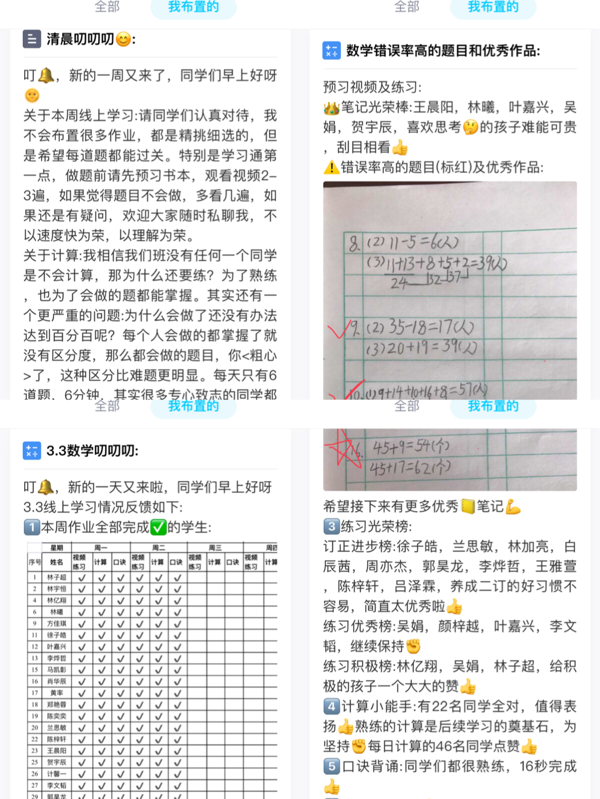 全部
我布置的
清晨叨叨叨😊:
叮🔔，新的一周又来了，同学们早上好呀
🌞
关于本周线上学习:请同学们认真对待，我
不会布置很多作业，都是精挑细选的，但
是希望每道题都能过关。特别是学习通第
一点，做题前请先预习书本，观看视频2-
3遍，如果觉得题目不会做，多看几遍，如
果还是有疑问，欢迎大家随时私聊我，不
以速度快为荣，以理解为荣。
关于计算:我相信我们班没有任何一个同学
是不会计算，那为什么还要练？为了熟练
，也为了会做的题都能掌握。其实还有一
个更严重的问题:为什么会做了还没有办法
达到百分百呢？每个人会做的都掌握了就
没有区分度，那么都会做的题目，你<粗心
>了，这种区分比难题更明显。每天只有6
道题，6分钟，其实很多专心致志的同学都
全部
我布置的
数学错误率高的题目和优秀作品:
预习视频及练习:
👑笔记光荣棒:王晨阳，林曦，叶嘉兴，吴
娟，贺宇辰，喜欢思考🤔的孩子难能可贵
，刮目相看👍
⚠️错误率高的题目(标红)及优秀作品:
8. (2) 11-5=6(人)
(3) 11+13+8+5+2=39(人)
24 32 37
9. (2) 35-18=17(人)
(3) 20+19=39(人)
10. (1) 9+14+10+16+8=57(人)
全部
我布置的
3.3数学叨叨叨:
叮🔔，新的一天又来啦，同学们早上好呀
3.3线上学习情况反馈如下:
1️⃣本周作业全部完成✅的学生:
星期 周一 周二 周三 周四
序号 姓名 视频练习 计算 口诀 视频练习 计算 口诀 视频练习 计算 口诀 视频练习 计算
1 林子超 ✓ ✓ ✓ ✓ ✓ ✓
2 林宇恒 ✓ ✓ ✓ ✓ ✓ ✓
4 林亿翔 ✓ ✓ ✓ ✓ ✓ ✓
6 林曦 ✓ ✓ ✓ ✓ ✓ ✓
9 方佳琪 ✓ ✓ ✓ ✓ ✓ ✓
11 徐子皓 ✓ ✓ ✓ ✓ ✓ ✓
12 叶嘉兴 ✓ ✓ ✓ ✓ ✓ ✓
13 李烨哲 ✓ ✓ ✓ ✓ ✓ ✓
15 马凯彰 ✓ ✓ ✓ ✓ ✓ ✓
16 肖华辰 ✓ ✓ ✓ ✓ ✓ ✓
17 黄率 ✓ ✓ ✓ ✓ ✓ ✓
18 郑艳蓉 ✓ ✓ ✓ ✓ ✓ ✓
19 陈奕奕 ✓ ✓ ✓ ✓ ✓ ✓
20 兰思敏 ✓ ✓ ✓ ✓ ✓ ✓
22 陈梓轩 ✓ ✓ ✓ ✓ ✓ ✓
23 王晨阳 ✓ ✓ ✓ ✓ ✓ ✓
25 贺宇辰 ✓ ✓ ✓ ✓ ✓ ✓
26 计馨一 ✓ ✓ ✓ ✓ ✓ ✓
27 李文韬 ✓ ✓ ✓ ✓ ✓ ✓
29 郭昊龙 ✓ ✓ ✓ ✓ ✓ ✓
全部
我布置的
45+9=54(个)
45+17=62(个)
希望接下来有更多优秀📒笔记💪
3️⃣练习光荣榜:
订正进步榜:徐子皓，兰思敏，林加亮，白
辰茜，周亦杰，郭昊龙，李烨哲，王雅萱
，陈梓轩，吕泽霖，养成二订的好习惯不
容易，简直太优秀啦👍
练习优秀榜:吴娟，颜梓越，叶嘉兴，李文
韬，继续保持✊
练习积极榜:林亿翔，吴娟，林子超，给积
极的孩子一个大大的赞👍
4️⃣计算小能手:有22名同学全对，值得表
扬👍熟练的计算是后续学习的奠基石，为
坚持✊每日计算的46名同学点赞👍
5️⃣口诀背诵:同学们都很熟练，16秒完成
👍